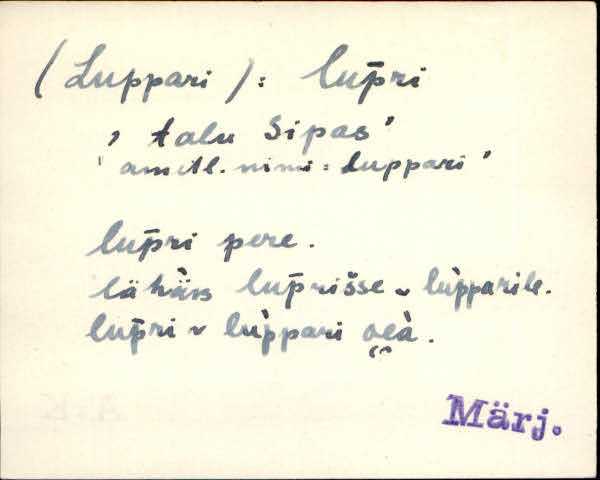 (Luppari): lup̄ri
, talu Sipas'
' ametl. nimi: Luppari'
lup̄ri pere.
lähàb lup̄rišse ᴗ lùpparile.
lup̄ri ᴗ lùppari
Märj.